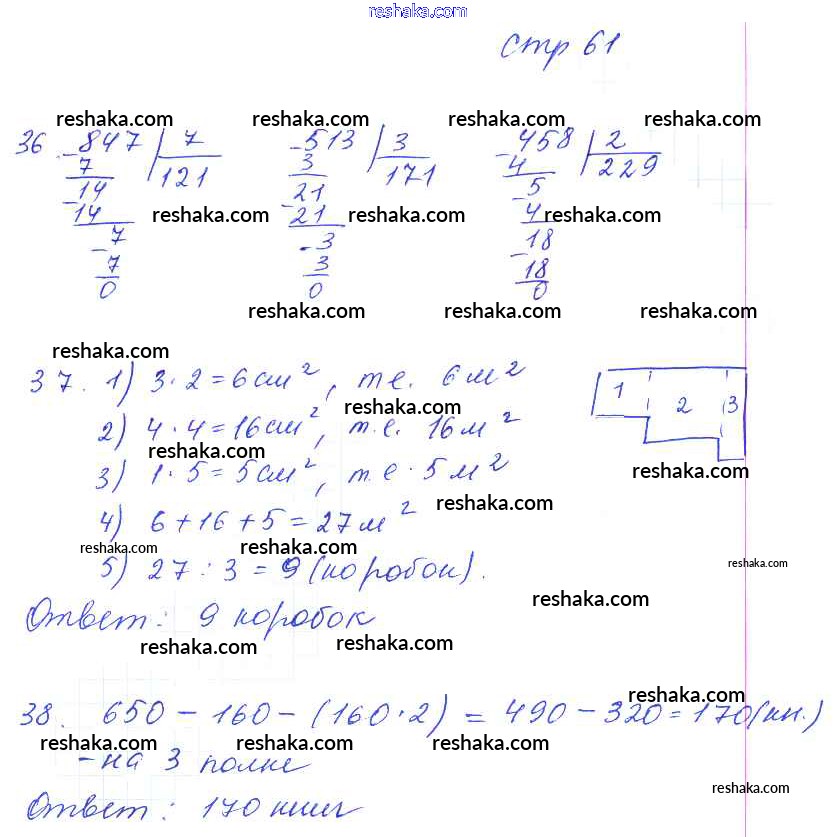 reshaka.com
стр 61
reshaka.com reshaka.com reshaka.com reshaka.com
36. 847 | 7 513 | 3 458 | 2
- 7 121 - 3 171 - 4 229
14 21 5
- 14 - 21 - 4
reshaka.com reshaka.com reshaka.com
7 3 18
- 7 - 3 - 18
0 0 0
reshaka.com reshaka.com reshaka.com
reshaka.com
37. 1) 3·2=6см², т.е. 6м² 1 2 3
reshaka.com
2) 4·4=16см², т.е. 16м²
reshaka.com reshaka.com
3) 1·5=5см², т.е. 5м²
reshaka.com
4) 6+16+5=27м²
reshaka.com reshaka.com reshaka.com
5) 27:3=9(коробок).
reshaka.com
Ответ: 9 коробок
reshaka.com reshaka.com
reshaka.com
38. 650-160-(160·2)=490-320=170(кн.)
reshaka.com reshaka.com reshaka.com
-на 3 полке
reshaka.com
Ответ: 170 книг